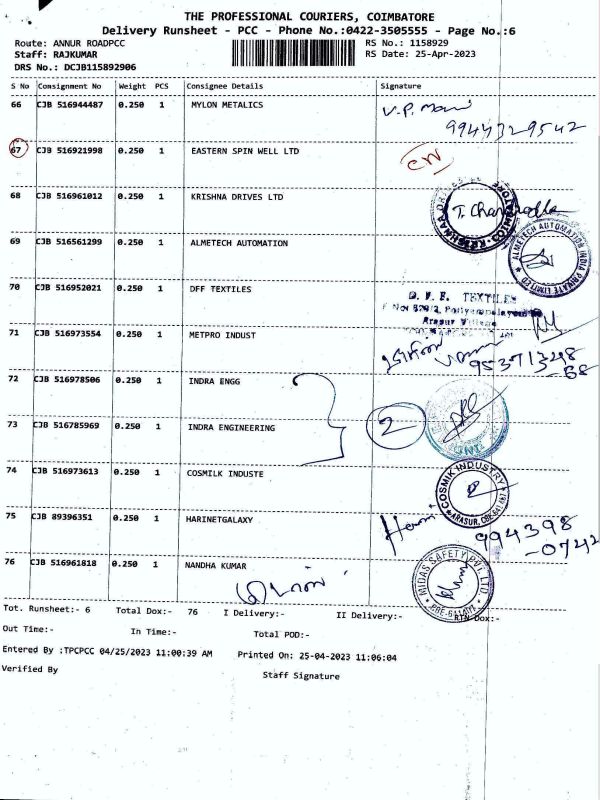 THE PROFESSIONAL COURIERS, COIMBATORE
Delivery Runsheet - PCC - Phone No.:0422-3505555 - Page No.:6
Route: ANNUR ROADPCC RS No.: 1158929
Staff: RAJKUMAR RS Date: 25-Apr-2023
DRS No.: DCJB115892906
S No Consignment No Weight PCS Consignee Details Signature
66 CJB 516944487 0.250 1 MYLON METALICS V.P. Mani
9944329542
67 CJB 516921998 0.250 1 EASTERN SPIN WELL LTD
68 CJB 516961012 0.250 1 KRISHNA DRIVES LTD
69 CJB 516561299 0.250 1 ALMETECH AUTOMATION ALMETECH AUTOMATION INDIA PRIVATE LIMITED
70 CJB 516952021 0.250 1 DFF TEXTILES
TEXTILES
Arasur Village
71 CJB 516973554 0.250 1 METPRO INDUST
72 CJB 516978506 0.250 1 INDRA ENGG
2
73 CJB 516785969 0.250 1 INDRA ENGINEERING
74 CJB 516973613 0.250 1 COSMILK INDUSTE COSMIK INDUSTRY
ARASUR, CBE-641 407
75 CJB 89396351 0.250 1 HARINETGALAXY Hami
994398
-0742
76 CJB 516961818 0.250 1 NANDHA KUMAR MIDAS SAFETY PVT. LTD
Tot. Runsheet:- 6 Total Dox:- 76 I Delivery:- II Delivery:- RTN Dox:-
Out Time:- In Time:- Total POD:-
Entered By :TPCPCC 04/25/2023 11:00:39 AM Printed On: 25-04-2023 11:06:04
Verified By Staff Signature